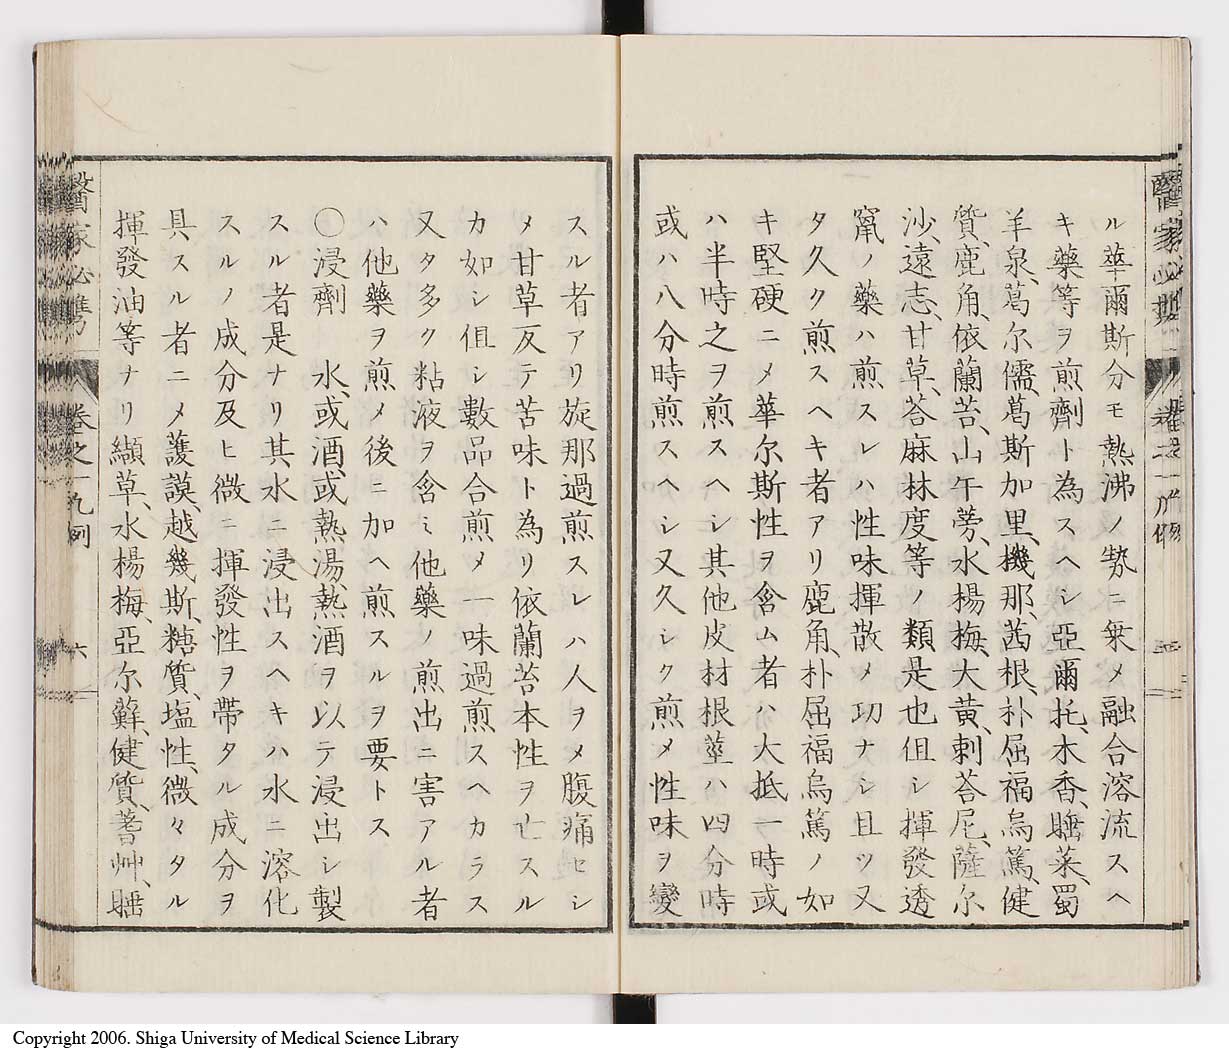 ル華爾斯分モ熱沸ノ勢ニ乗メ融合溶流スヘ
キ藥等ヲ煎劑ト為スヘシ亞爾托、木香、䕡菜、蜀
羊泉、葛尔儒、葛斯加里、機那、茜根、朴屈福烏篤、健
質、鹿角、依蘭苔、山午蒡、水楊梅、大黄、剌荅尼、薩尔
沙、遠志、甘草、荅麻林度等ノ類是也但シ揮發透
竄ノ藥ハ煎スレハ性味揮散メ功ナシ且ツ又
タ久ク煎スヘキ者アリ鹿角、朴屈福烏篤ノ如
キ堅硬ニメ華尔斯性ヲ含ム者ハ大抵一時或
ハ半時之ヲ煎スヘシ其他皮材根莖ハ四分時
或ハ八分時煎スヘシ又久シク煎メ性味ヲ變
スル者アリ旋那過煎スレハ人ヲメ腹痛セシ
メ甘草反テ苦味ト為リ依蘭苔本性ヲ亡スル
カ如シ但シ數品合煎メ一味過煎スヘカラス
又タ多ク粘液ヲ含ミ他藥ノ煎出ニ害アル者
ハ他藥ヲ煎メ後ニ加ヘ煎スルヲ要トス
〇浸劑 水、或酒、或熱湯、熱酒ヲ以テ浸出シ製
スル者是ナリ其水ニ浸出スヘキハ水ニ溶化
スルノ成分及ヒ微ニ揮發性ヲ帶タル成分ヲ
具スル者ニメ護謨、越幾斯、糖質、塩性、微々タル
揮發油等ナリ纈草、水楊梅、亞尔蘚、健質、蓍艸、
醫家必攜
卷之一凡例
六
Copyright 2006. Shiga University of Medical Science Library